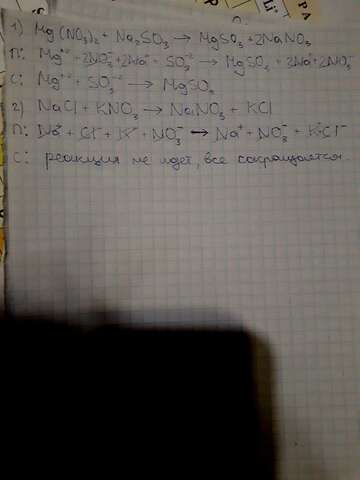 1) Mg(NO₃)₂ + Na₂SO₃ → MgSO₃ + 2NaNO₃
П: Mg⁺² + 2NO₃⁻ + 2Na⁺ + SO₃⁻² → MgSO₃ + 2Na⁺ + 2NO₃⁻
С: Mg⁺² + SO₃⁻² → MgSO₃
2) NaCl + KNO₃ → NaNO₃ + KCl
П: Na⁺ + Cl⁻ + K⁺ + NO₃⁻ → Na⁺ + NO₃⁻ + K⁺Cl⁻
С: реакция не идет, все сокращается.